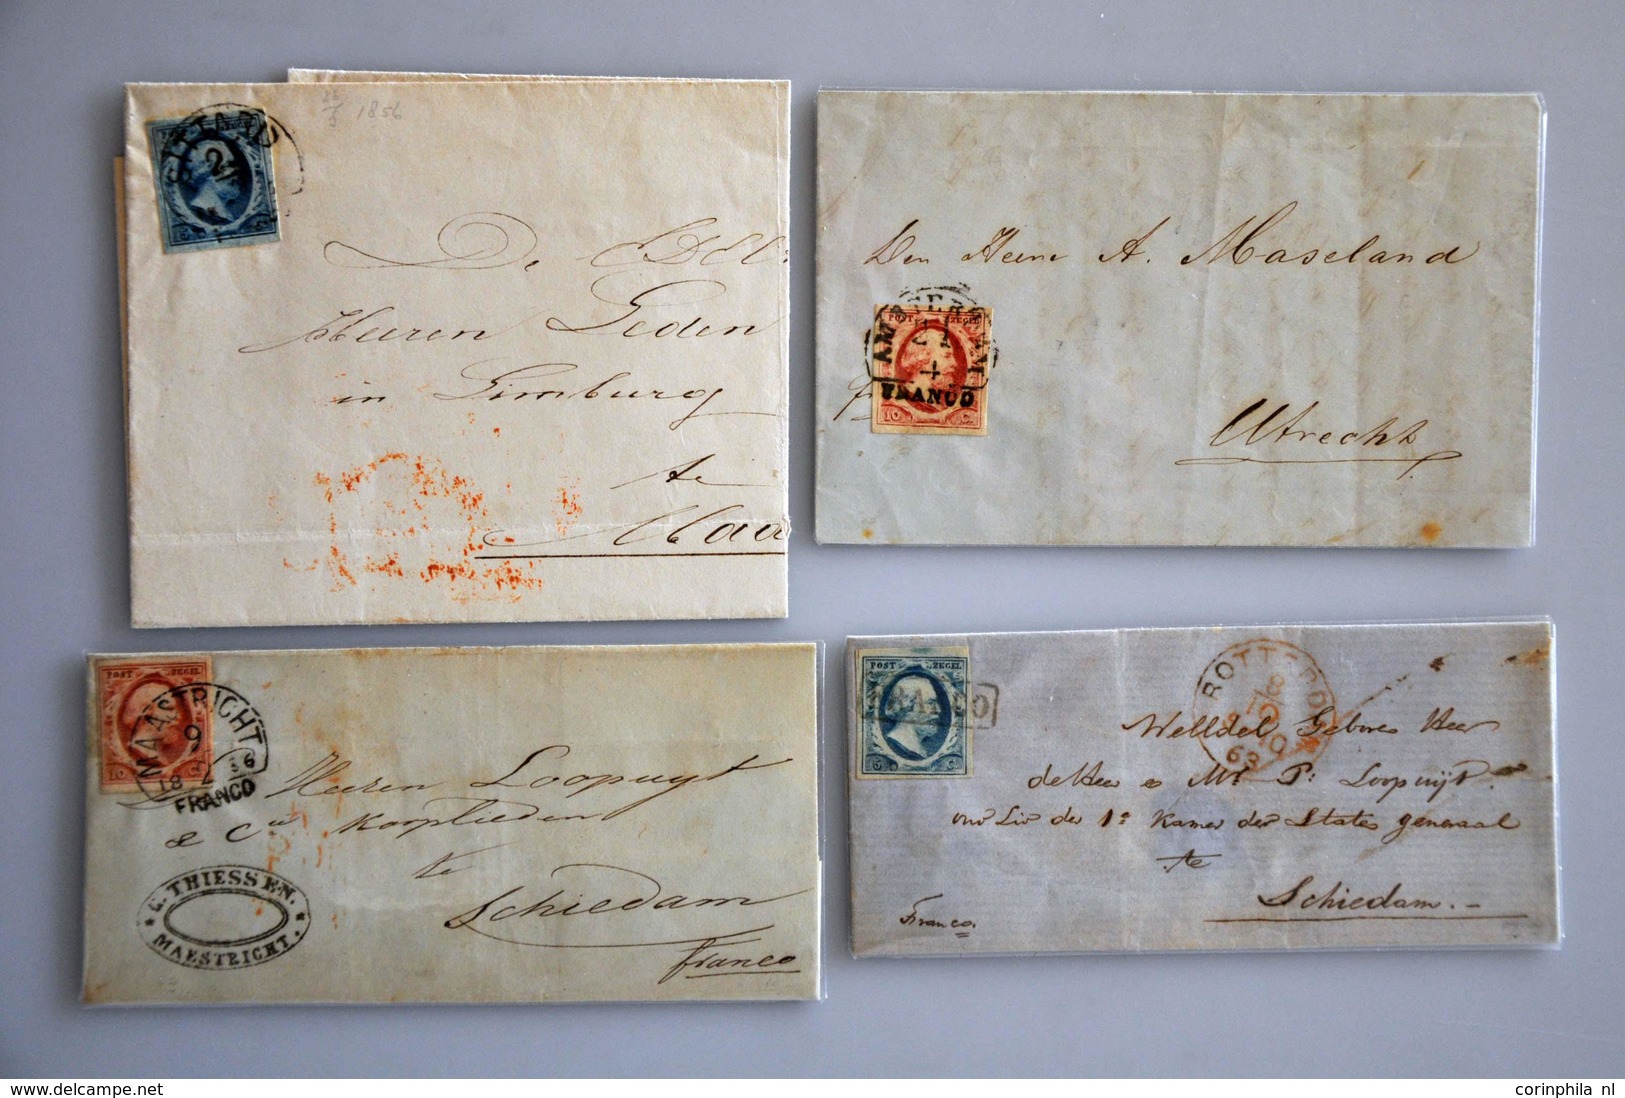 SITTARD
2
1856
De
Heeren Leden
in Limburg
te
Maa
Den Heere A. Maseland
POST ZEGEL
AMSTERDAM
21
4
FRANCO
10 C.
Utrecht
POST ZEGEL
MAASTRICHT
9
18 56
FRANCO
10
Heeren Loopuyt
& Cie Korplieden
te
Schiedam
franco
G. THIESSEN.
* MAESTRICHT. *
POST ZEGEL
FRANCO
5 C.
ROTTERDAM
8
10
63
Welldel Gebore Heer
de Heer Mr. P: Loopuijt
Lid der 1e Kamer der States generaal
te
Schiedam.
Franco.
delcampe.net
corinphila nl